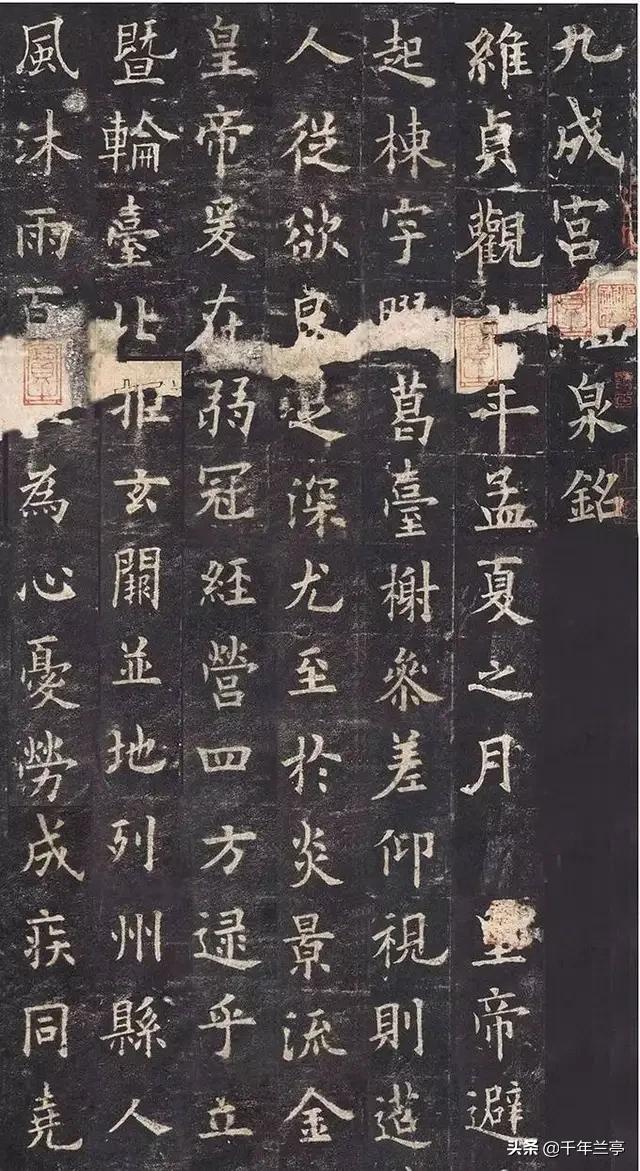 九成宮泉銘
維貞觀年孟夏之月 皇帝避
起棟宇葛臺榭參差仰視則迢
人從欲良足深尤至於炎景流金
皇帝爰在弱冠經營四方逮乎立
暨輪臺北拒玄闕並地列州縣人
風沐雨百為心憂勞成疾同堯
头条 @千年兰亭